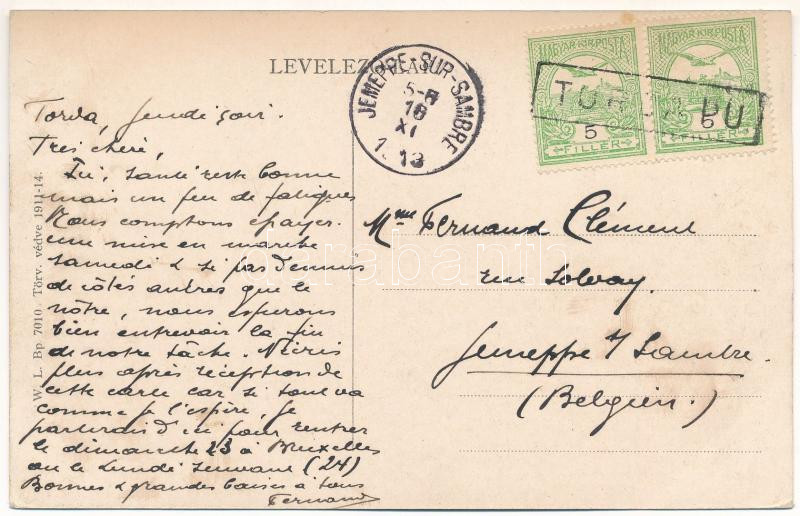 LEVELEZŐLAP
JEMEPPE-SUR-SAMBRE
5-
16
XI
13
MAGYAR KIR. POSTA
5
FILLER
MAGYAR KIR. POSTA
5
FILLER
TORDA PU
Torda, jeudi soir.
Très chère,
Ici, santé reste bonne
mais un peu de fatigues
Nous comptons essayer
une mise en marche
samedi & si pas d'ennuis
de côtés autres que le
nôtre, nous espérons
bien entrevoir la fin
de notre tâche. N'écris
plus après réception de
cette carte car si tout va
comme je l'espère, je
partirais d'ici pour rentrer
le dimanche 23 à Bruxelles
ou le lundi suivant (24)
Bonnes & grandes baises à tous
Fernand
Mme Fernand Clément
rue Solvay.
Jemeppe s/ Sambre.
(Belgien.)
W. L. Bp. 7010. Törv. védve 1911-14.
darabanth